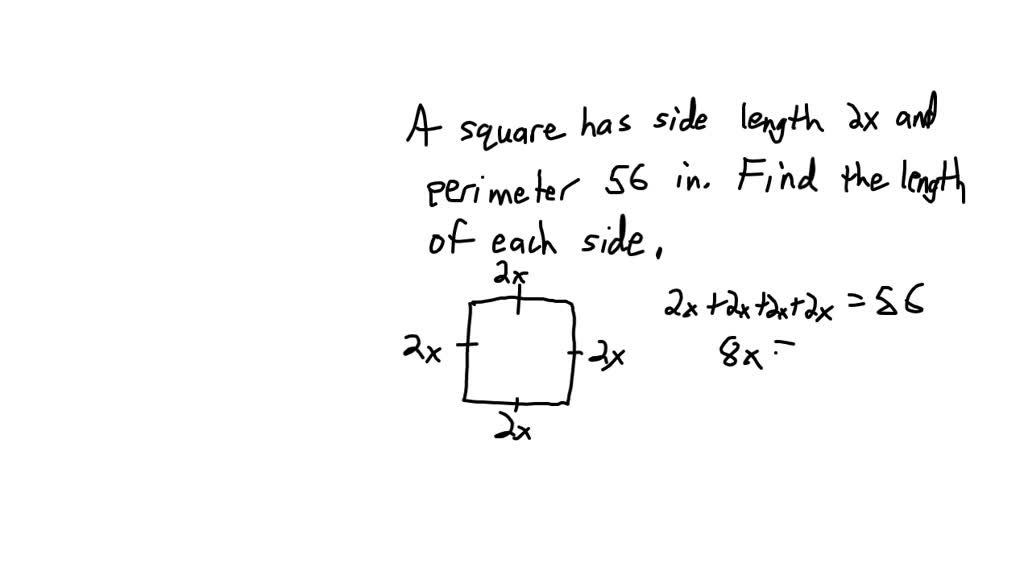 A square has side length 2x and
perimeter 56 in. Find the length
of each side.
2x
2x + 2x + 2x + 2x = 56
2x
2x
8x =
2x